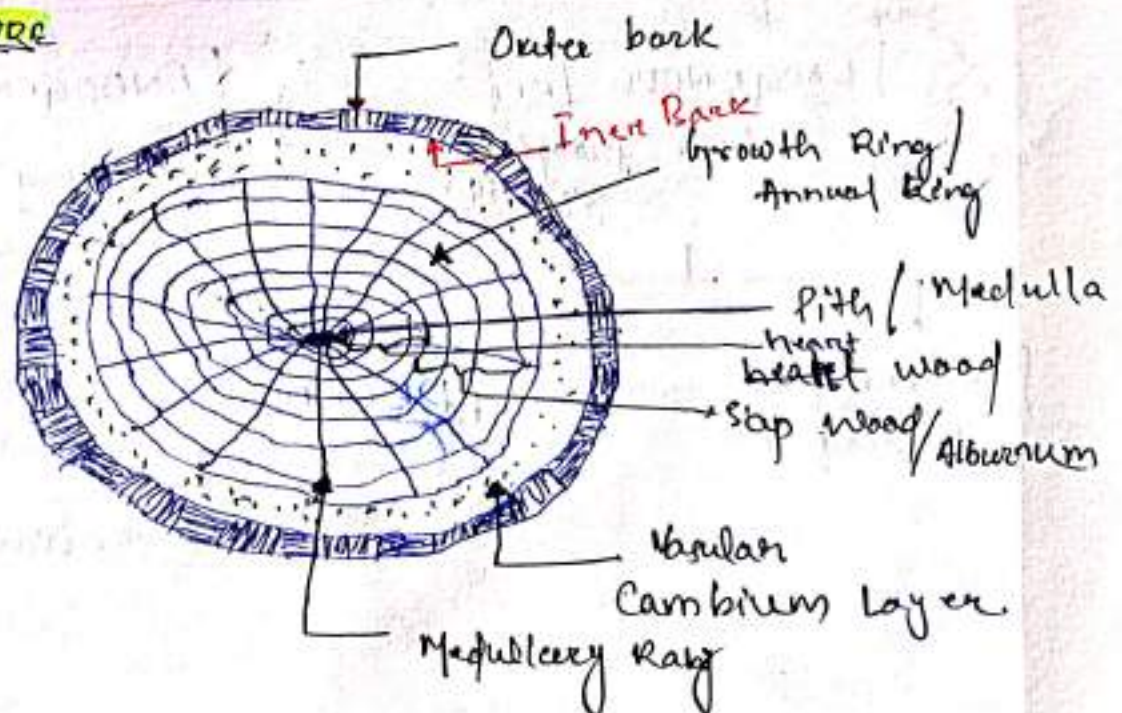 Outer bark
Iner Bark
Growth Ring/
Annual Ring
Pith / Medulla
heart
heart wood
Sap wood/Alburnum
Vasular
Cambium Layer
Medullery Ray